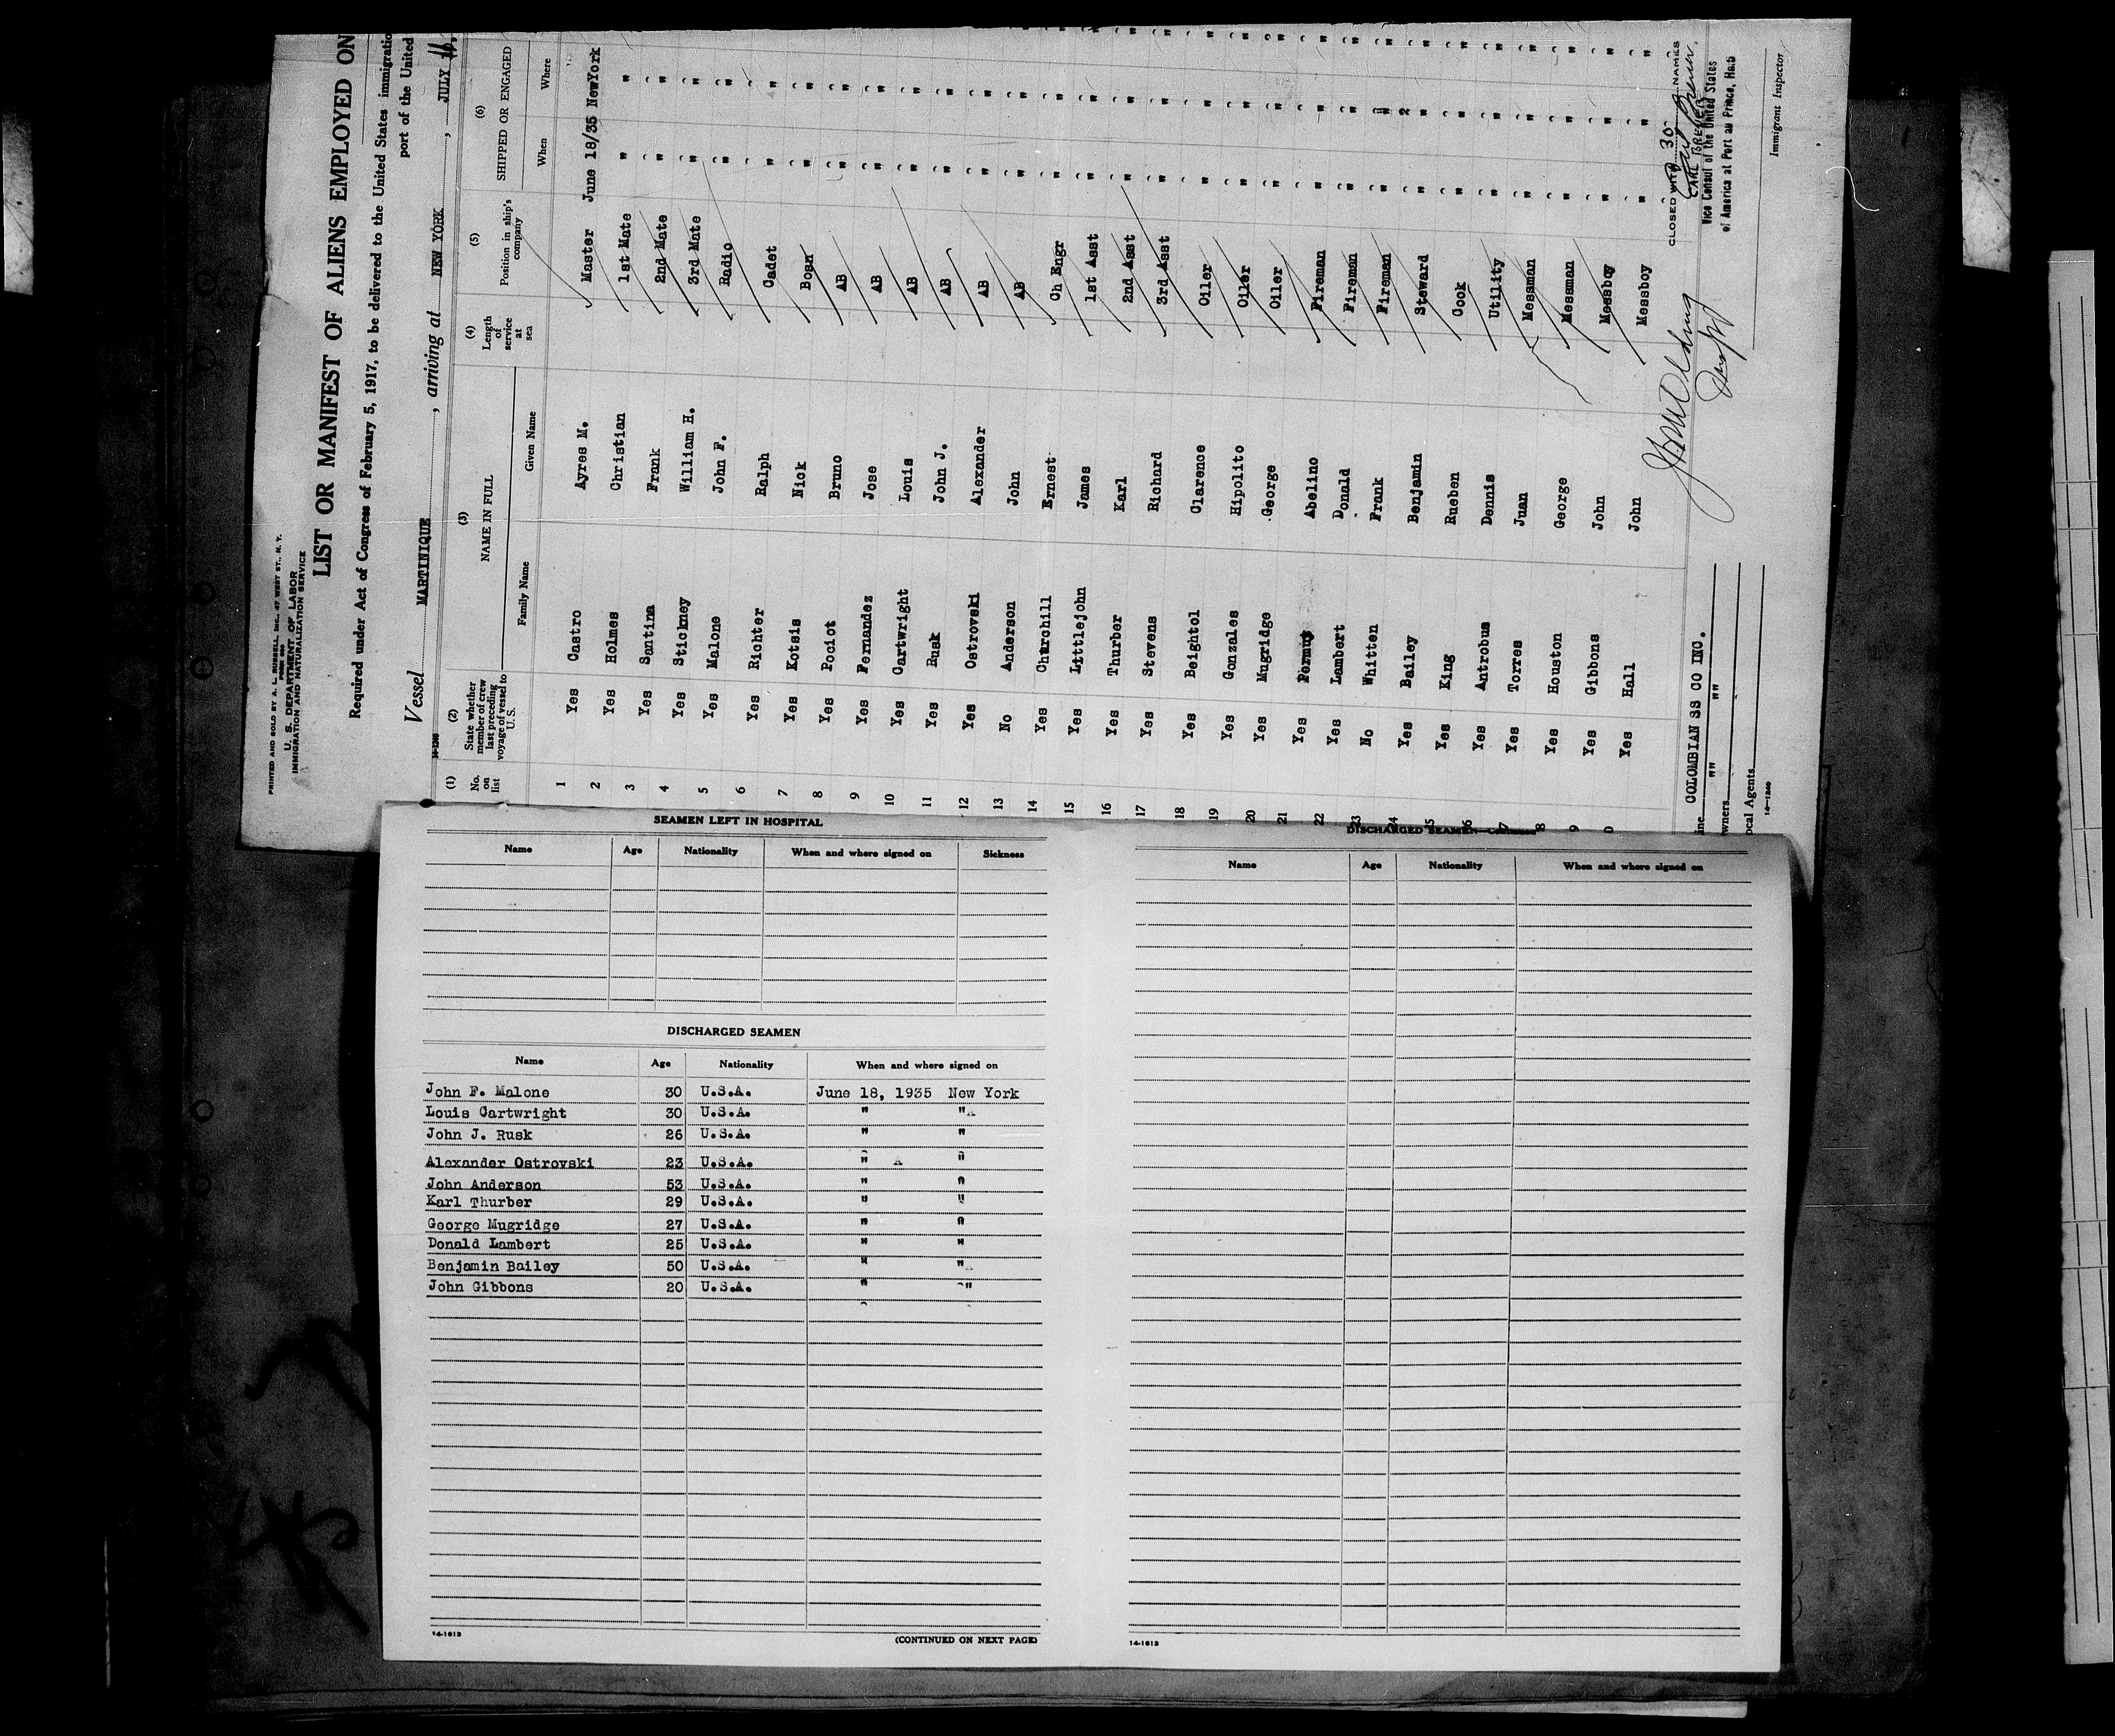 PRINTED AND SOLD BY A. L. RUSSELL, INC., 47 WEST ST., N. Y.
U. S. DEPARTMENT OF LABOR
IMMIGRATION AND NATURALIZATION SERVICE
LIST OR MANIFEST OF ALIENS EMPLOYED ON
Required under Act of Congress of February 5, 1917, to be delivered to the United States immigratio
port of the United
Vessel MARTINIQUE, arriving at NEW YORK, JULY
(1) No. on list (2) State whether member of crew last preceding voyage of vessel to U. S. (3) NAME IN FULL Family Name Given Name (4) Length of service at sea (5) Position in ship's company (6) SHIPPED OR ENGAGED When Where
1 Yes Castro Ayres M. Master June 18/35 NewYork
2 Yes Holmes Christian 1st Mate " "
3 Yes Santina Frank 2nd Mate " "
4 Yes Stickney William H. 3rd Mate " "
5 Yes Malone John F. Radio " "
6 Yes Richter Ralph Cadet " "
7 Yes Kotsis Nick Bosn " "
8 Yes Pociot Bruno AB " "
9 Yes Fernandez Jose AB " "
10 Yes Cartwright Louis AB " "
11 Yes Rusk John J. AB " "
12 Yes Ostrovski Alexander AB " "
13 No Anderson John AB " "
14 Yes Churchill Ernest Ch Engr " "
15 Yes Littlejohn James 1st Asst " "
16 Yes Thurber Karl 2nd Asst " "
17 Yes Stevens Richard 3rd Asst " "
18 Yes Beightol Clarence Oiler " "
19 Yes Gonzales Hipolito Oiler " "
20 Yes Mugridge George Oiler " "
21 Yes Abelino Fireman " "
22 Yes Lambert Donald Fireman " "
23 No Whitten Frank Fireman " "
24 Yes Bailey Benjamin Steward " "
25 Yes King Rueben Cook " "
26 Yes Antrobus Dennis Utility " "
7 Yes Torres Juan Messman " "
8 Yes Houston George Messman " "
9 Yes Gibbons John Messboy " "
0 Yes Hall John Messboy " "
CLOSED WITH 30 NAMES
CARL BREUER
Vice Consul of the United States
of America at Port au Prince, Haiti
Immigrant Inspector
ine COLOMBIAN SS CO INC.
wners "" ""
ocal Agents
14-1240
SEAMEN LEFT IN HOSPITAL
Name Age Nationality When and where signed on Sickness
DISCHARGED SEAMEN
Name Age Nationality When and where signed on
John F. Malone 30 U.S.A. June 18, 1935 New York
Louis Cartwright 30 U.S.A. " "
John J. Rusk 26 U.S.A. " "
Alexander Ostrovski 23 U.S.A. " "
John Anderson 53 U.S.A. " "
Karl Thurber 29 U.S.A. " "
George Mugridge 27 U.S.A. " "
Donald Lambert 25 U.S.A. " "
Benjamin Bailey 50 U.S.A. " "
John Gibbons 20 U.S.A. " "
14-1613
(CONTINUED ON NEXT PAGE)
DISCHARGED SEAMEN—Continued
Name Age Nationality When and where signed on
14-1613